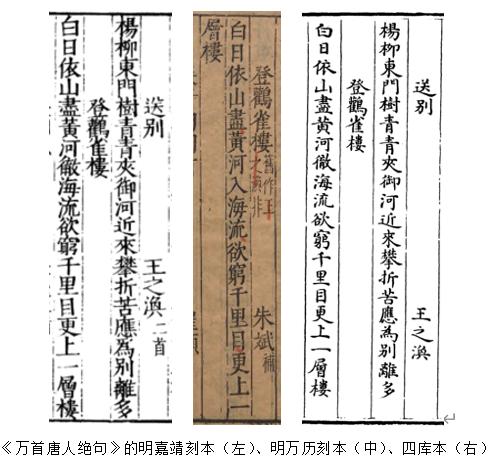 送别 王之渙 二首
楊柳東門樹青青夾御河近來攀折苦應為別離多
登鸛雀樓
白日依山盡黃河徹海流欲窮千里目更上一層樓
登鸛雀樓 舊作王之渙非 朱斌 補
白日依山盡黃河入海流欲窮千里目更上一
層樓
送别 王之渙
楊柳東門樹青青夾御河近來攀折苦應為別離多
登鸛雀樓
白日依山盡黃河徹海流欲窮千里目更上一層樓
《万首唐人绝句》的明嘉靖刻本（左）、明万历刻本（中）、四库本（右）